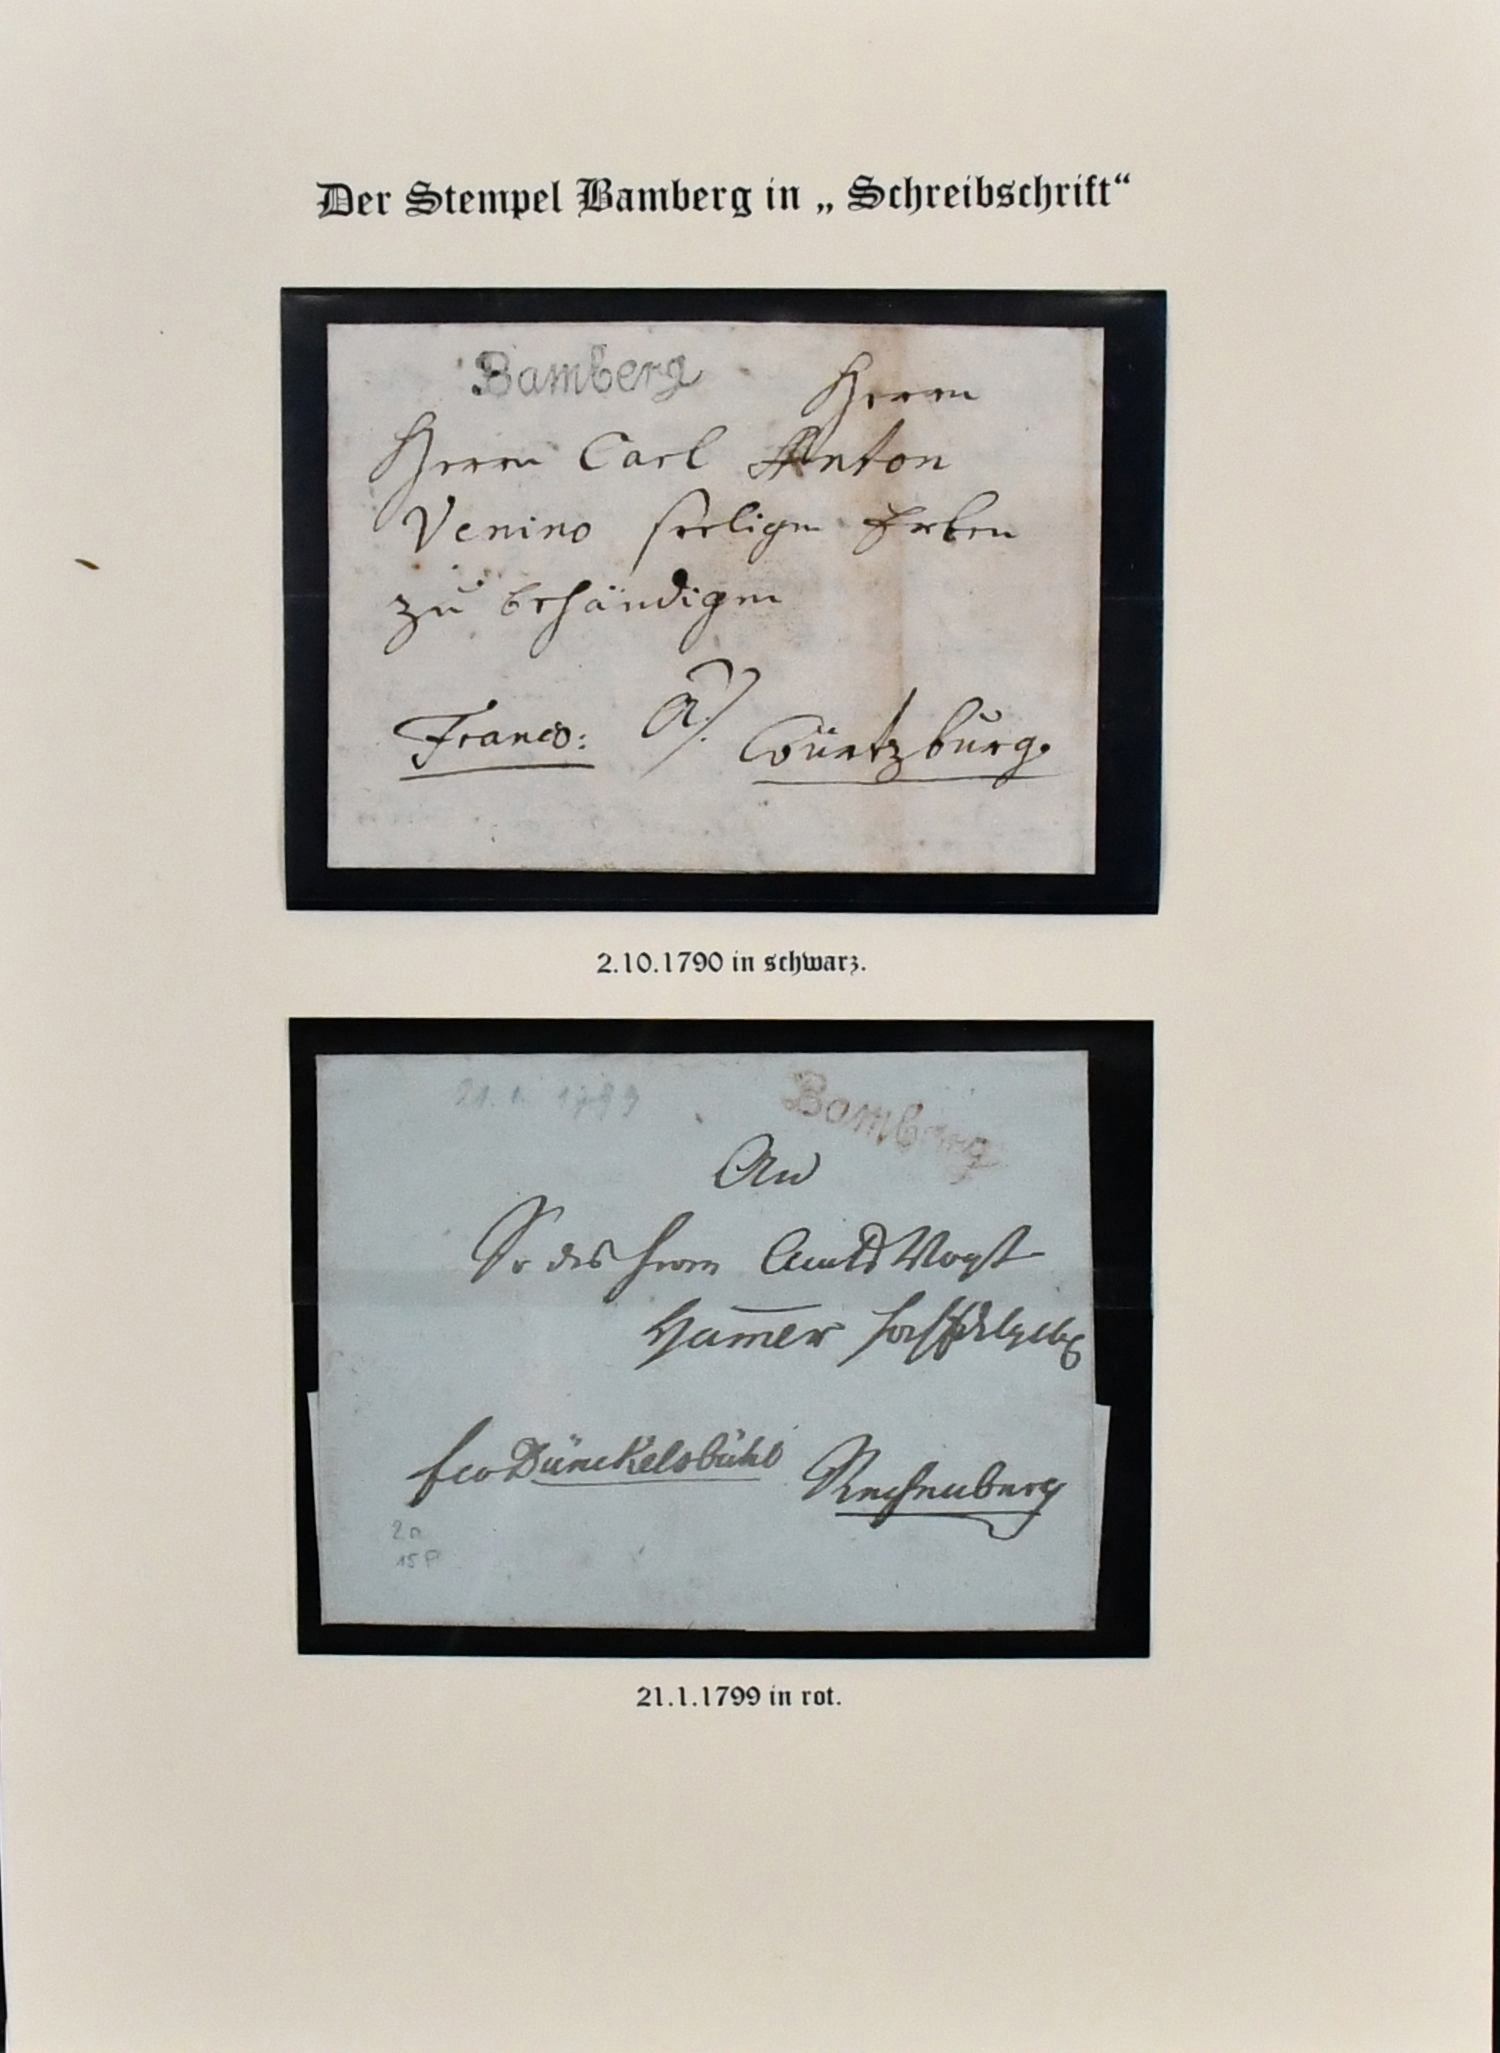 Der Stempel Bamberg in „ Schreibschrift“
Bamberg
Herrn
Herrn Carl Anton
Venino seeligen Erben
zu behändigen
Franco: a/. Würtzburg.
2.10.1790 in schwarz.
21. 1. 1799
Bamberg
An
des Herrn Amts Vogt
Hamer
fco Dünckelsbühl Rechenberg
2 n
15 P
21.1.1799 in rot.